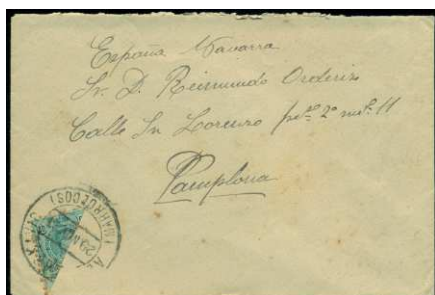 España Navarra
Sr. D. Reimundo Orderiz
Calle Sn Lorenzo 2º 11
Pamplona
(MARRUECOS)